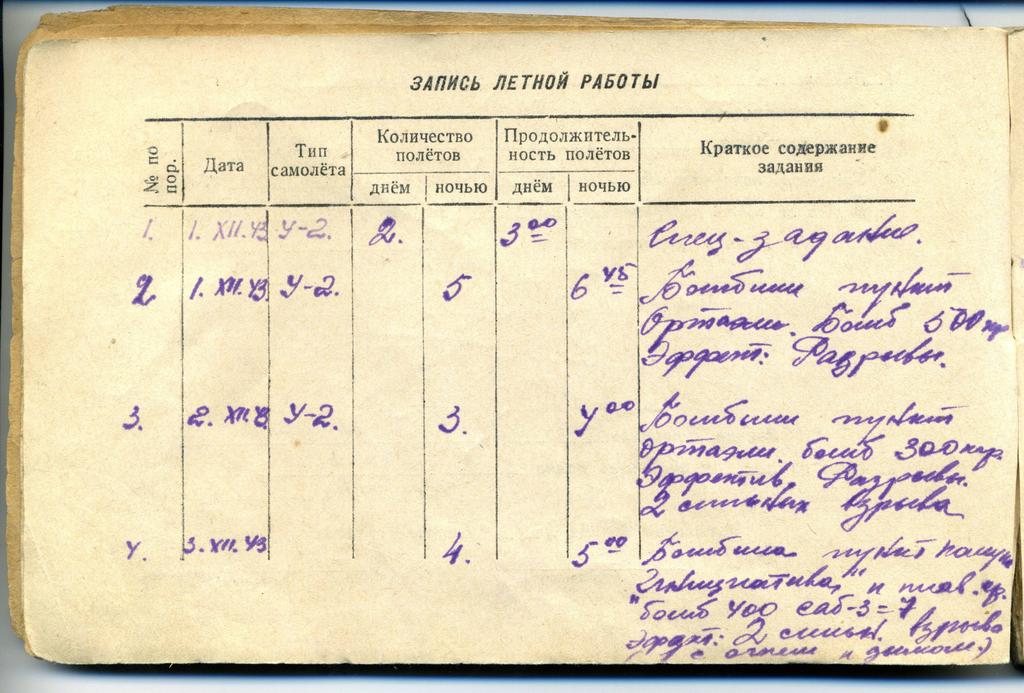 ЗАПИСЬ ЛЕТНОЙ РАБОТЫ
№ по пор.
Дата
Тип самолёта
Количество полётов
Продолжитель-
ность полётов
Краткое содержание
задания
днём ночью днём ночью
1. 1.XII.43 У-2. 2. 3 00 Спец-задание.
2 1.XII.43. У-2. 5 6 45 Бомбили пункт
Ортаэли. Бомб 500 кгр
Эффект: Разрывы.
3. 2.XII.43 У-2. 3. 4 00 Бомбили пункт
Ортаэли. бомб 300 кгр.
Эффектив. Разрывы.
2 сильных взрыва
4. 3.XII.43 4. 5 00 Бомбила пункт
"Инициатива" и
бомб 400 саб-3=7
Эффект: 2 сильн. взрыва
(с огнем и дымом.)